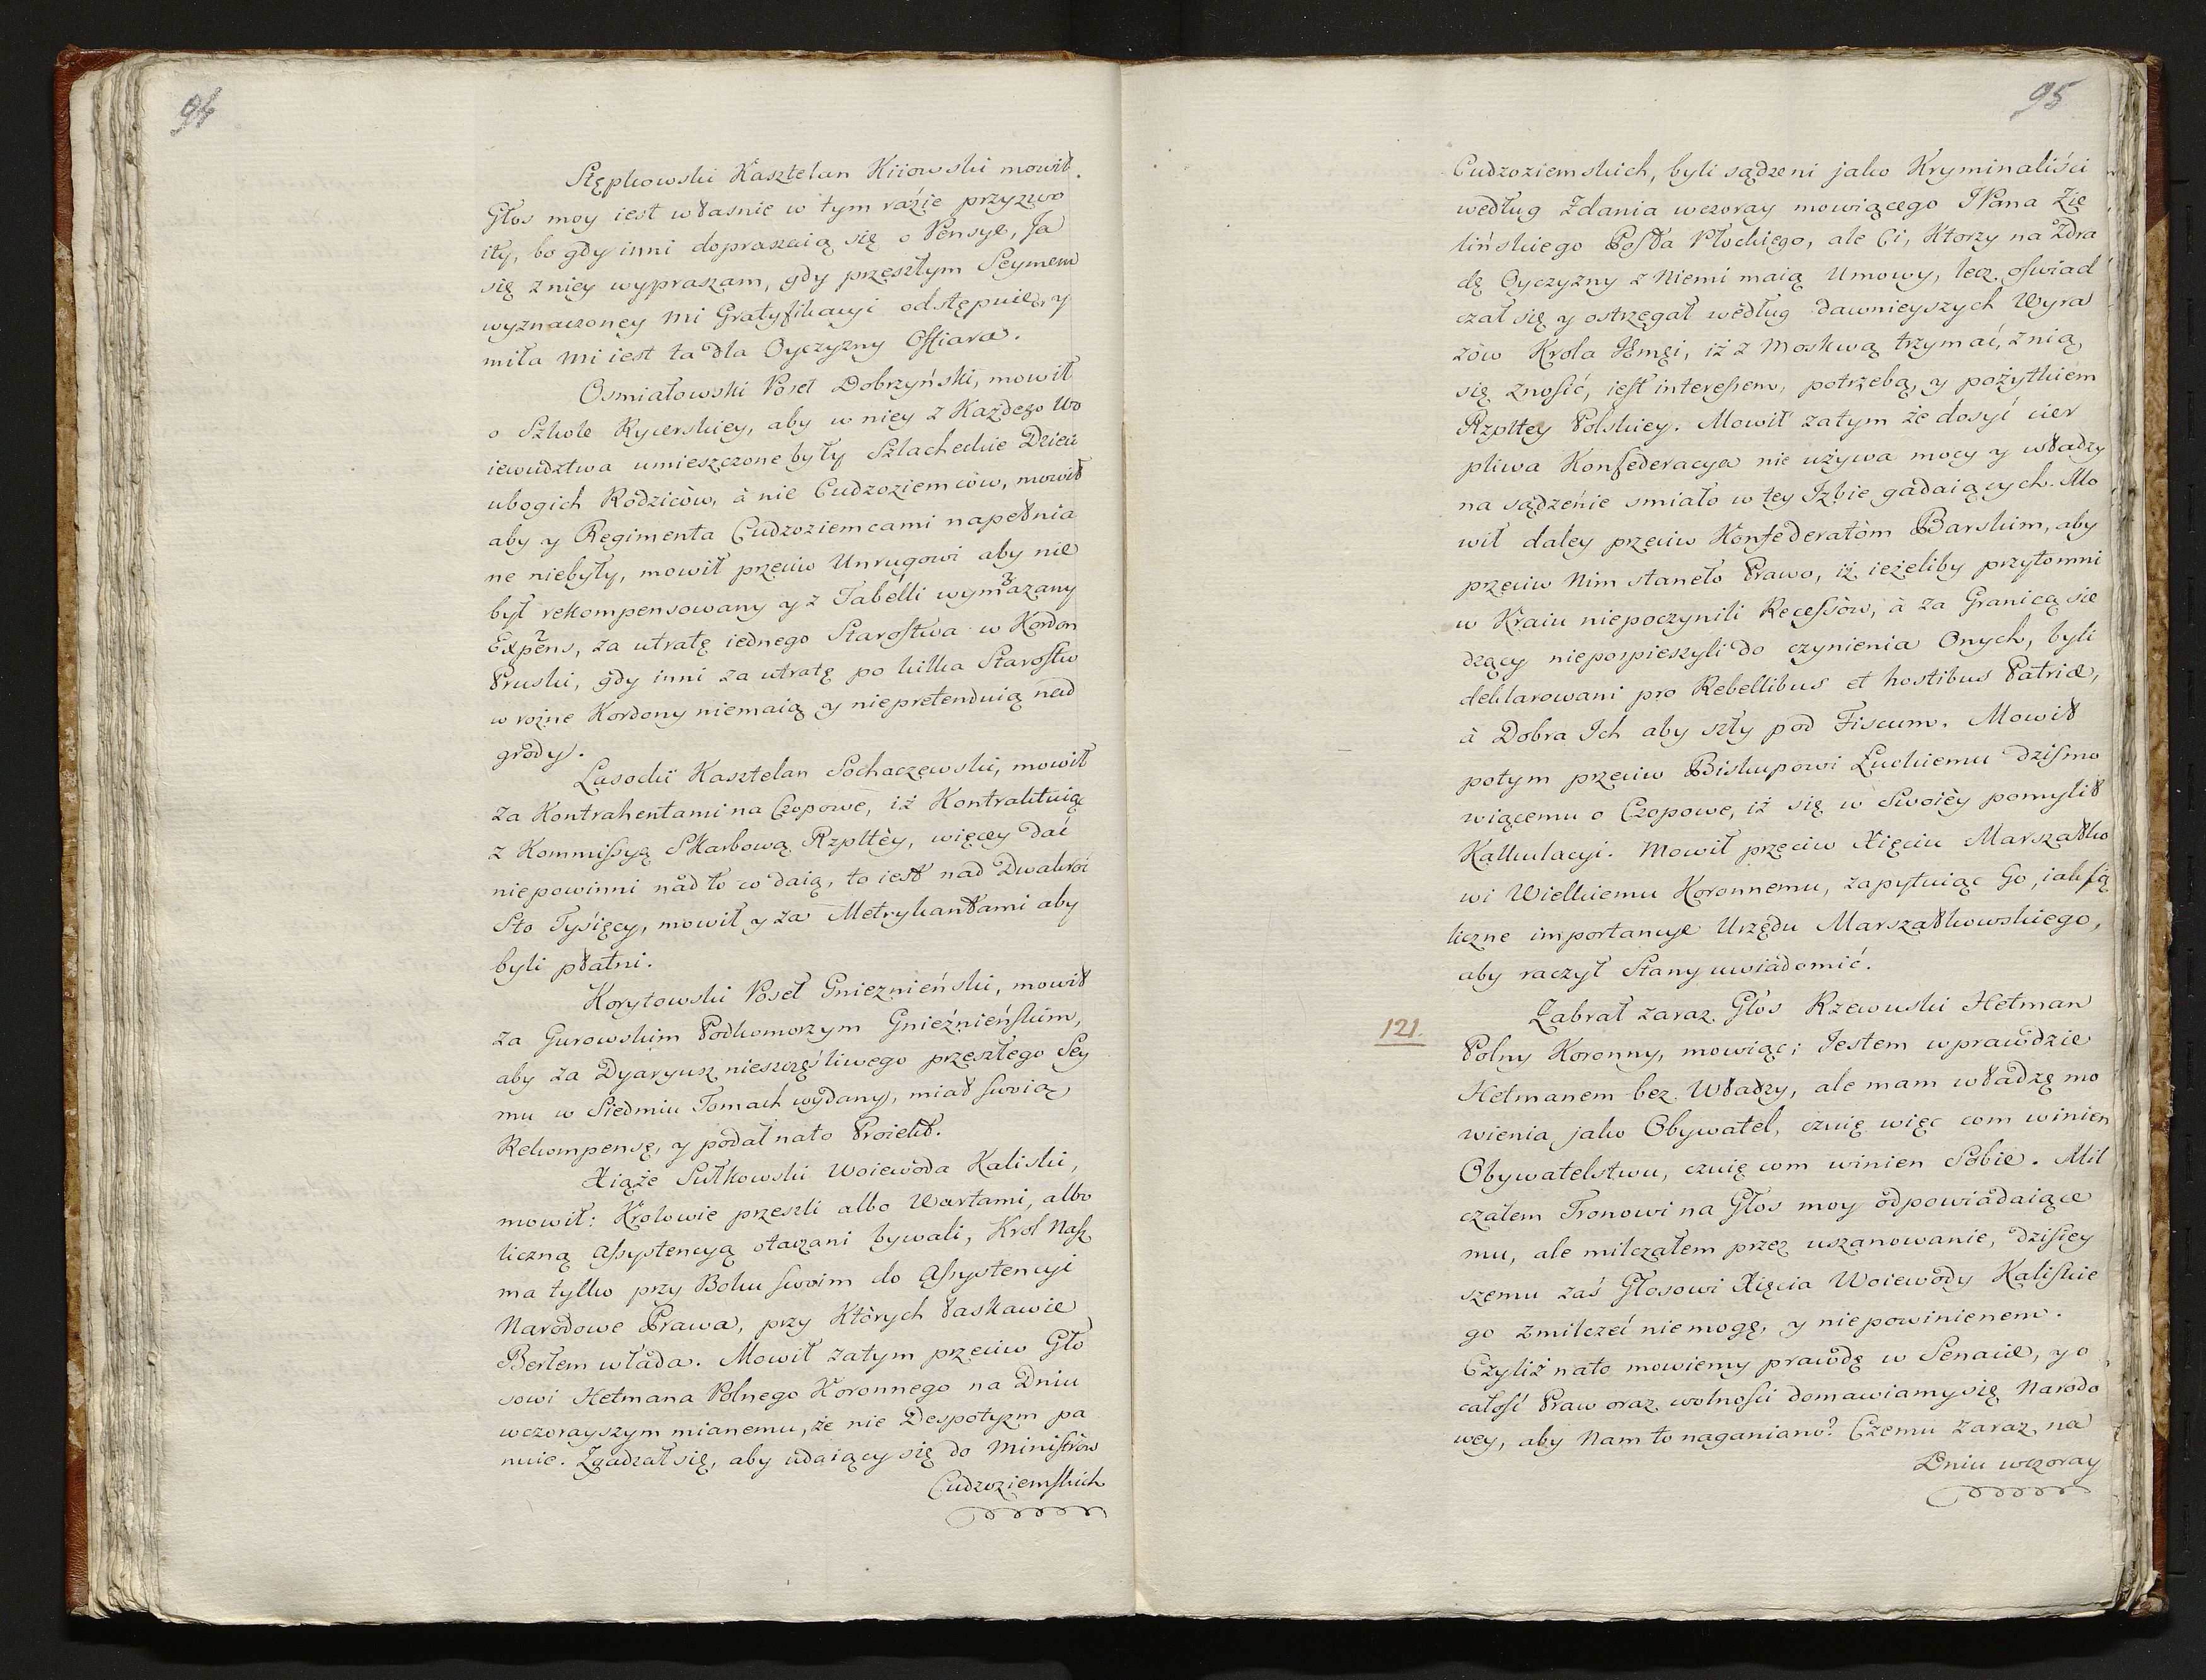 94
Stępkowski Kasztelan Kiiowski mowił.
Głos moy iest własnie w tym raźie przyzwo
ity, bo gdy inni dopraszaią się o Pensye, Ja
się z niey wypraszam, gdy przeszłym Seymem
wyznaczoney mi Gratyfikacyi odstępuię, y
miła mi iest ta dla Oyczyzny Offiara.
Osmiałowski Poseł Dobrzyński, mowił
o Szkole Rycerskiey, aby w niey z Każdego Wo
iewudztwa umieszczone były Szlacheckie Dzieci
ubogich Rodziców, à nie Cudzoziemców, mowił
aby y Regimenta Cudzoziemcami napełnia
ne niebyły, mowił przeciw Unrugowi aby nie
był rekompensowany y z Tabelli wymazany
Expens, za utratę iednego Starostwa w Kordon
Pruski, gdy inni za utratę po kilka Starostw
w rożne Kordony niemaią y niepretenduią nad
grody.
Lasocki Kasztelan Sochaczewski, mowił
za Kontrahentami na Czopowe, iż Kontraktuiąc
z Kommissyą Skarbową Rzpltèy, więcey dać
niepowinni nåd to co daią, to iest nad Dwakroć
Sto Tysięcy, mowił y za Metrykantami aby
byli płatni.
Korytowski Poseł Gniezniński, mowił
za Gurowskim Podkomorzym Gnieźnieńskim,
aby za Dyaryusz nieszczęśliwego przeszłego Sey
mu w Siedmiu Tomach wydany, miał swoią
Rekompensę, y podał nato Proiekt.
Xiąże Sułkowski Woiewoda Kaliski,
mowił: Krolowie przeszli albo Wartami, albo
liczną Assystencyą otaczani bywali, Krol Nasz
ma tylko przy Boku swoim do Assystencyi
Narodowe Prawa, przy Których łaskawie
Berłem włåda. Mowił zatym przeciw Gło
sowi Hetmana Polnego Koronnego na Dniu
wczorayszym mianemu, że nie Despotyzm pa
nuie. Zgadzał się, aby udaiący się do Ministrów
Cudzoziemskich
95
Cudzoziemskich, byli sądzeni jako Kryminaliści
według Zdania wczoray mowiącego JPana Zie
lińskiego Posła Płockiego, ale Ci, Ktorzy na Zdra
dę Oyczyzny z Niemi maią Umowy, lecz oswiad
czał się y ostrzegał według dawnieyszych Wyra
zów Krola Jmci, iż z Moskwą trzymać, z nią
się znosić, iest interessem, potrzebą, y pożytkiem
Rzpltey Polskiey. Mowił zatym że dosyć cier
pliwa Konfederacya nie używa mocy y władzy
na sądzenie smiało w tey Izbie gådaiących. Mo
wił daley przeciw Konfederatòm Barskim, aby
przeciw Nim staneło Prawo, iż ieżeliby przytomni
w Kraiu niepoczynili Recessòw, à za Granicą sie
dzący niepospieszyli do czynienia Onych, byli
deklarowani pro Rebellibus et hostibus Patriæ,
à Dobra Ich aby szły pod Fiscum. Mowił
potym przeciw Biskupowi Łuckiemu dzismo
wiącemu o Czopowe, iż się w Swoièy pomylił
Kalkulacyi. Mowił przeciw Xięciu Marszałko
wi Wielkiemu Koronnemu, zapytuiąc Go, iak są
liczne importancye Urzędu Marszałkowskiego,
aby raczył Stany uwiådomić.
121.
Zabrał zaraz Głos Rzewuski Hetman
Polny Koronny, mowiąc; Jestem wprawdzie
Hetmanem bez Władzy, ale mam władzę mo
wienia jako Obywatel, czuię więc com winien
Obywatelstwu, czuię com winien Sobie. Mil
czałem Tronowi na Głos moy odpowiådaiące
mu, ale milczałem przez uszanowanie, dzisiey
szemu zaś Głosowi Xięcia Woiewody Kaliskie
go zmilczeć niemogę, y niepowinienem.
Czyliż nato mowiemy prawdę w Senacie, y o
całość Praw oraz wolności domawiamy się Narodo
wey, aby Nam to naganiano? Czemu zaraz na
Dniu wczoray